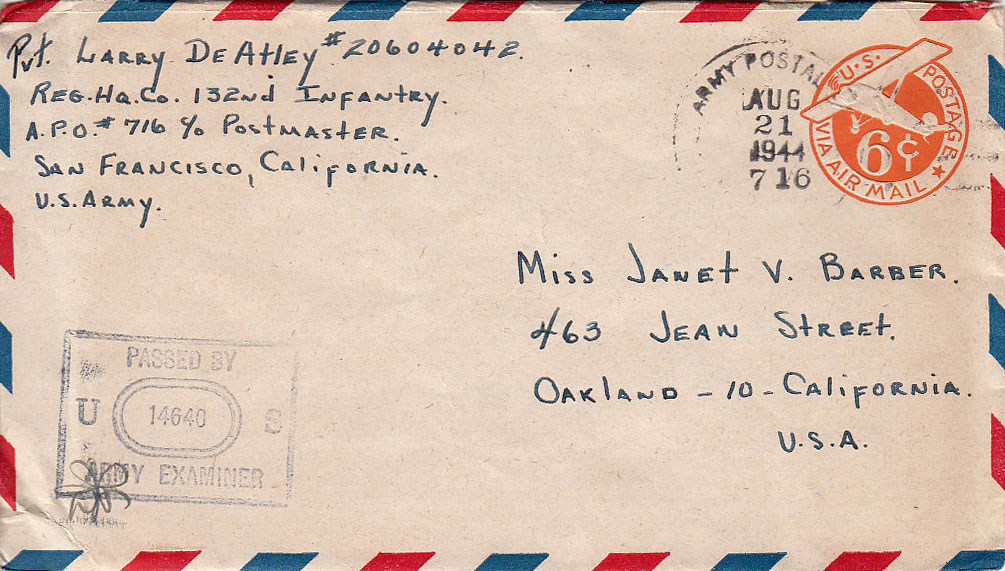 Pvt. Larry De Atley #20604042.
Reg. Hq. Co. 132nd Infantry.
A.P.O. #716 c/o Postmaster.
San Francisco, California.
U.S. Army.
ARMY POSTAL
AUG
21
1944
716
U.S. POSTAGE
6¢
VIA AIR MAIL
Miss Janet V. Barber.
463 Jean Street.
Oakland - 10 - California.
U.S.A.
PASSED BY
U 14640 S
ARMY EXAMINER